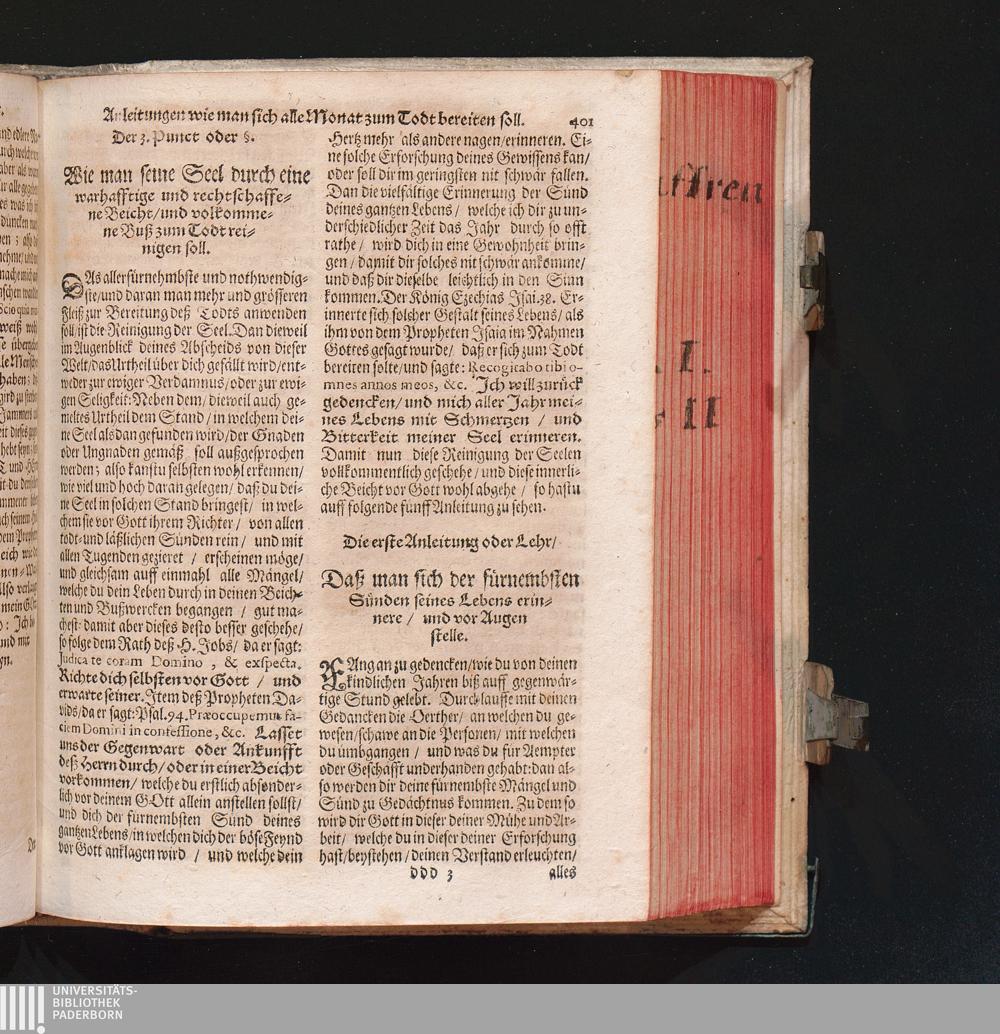 Anleitungen wie man sich alle Monat zum Todt bereiten soll. 401
Der 3. Punct oder §.
Wie man seine Seel durch eine
warhafftige und rechtschaffe-
ne Beicht/und volkomme-
ne Buß zum Todt rei-
nigen soll.
DAs allerfürnehmbste und nothwendig-
ste/und daran man mehr und grösseren
Fleiß zur Bereitung deß Todts anwenden
soll/ist die Reinigung der Seel. Dan dieweil
im Augenblick deines Abscheids von dieser
Welt/das Urtheil über dich gefällt wird/ent-
weder zur ewiger Verdamnus/oder zur ewi-
gen Seligkeit: Neben dem/ dieweil auch ge-
meltes Urtheil dem Stand/ in welchem dei-
ne Seel alsdan gefunden wird/der Gnaden
oder Ungnaden gemäß soll außgesprochen
werden; also kanstu selbsten wohl erkennen/
wie viel und hoch daran gelegen/ daß du dei-
ne Seel in solchen Stand bringest/ in wel-
chem sie vor Gott ihrem Richter/ von allen
todt- und läßlichen Sünden rein/ und mit
allen Tugenden gezieret / erscheinen möge/
und gleichsam auff einmahl alle Mängel/
welche du dein Leben durch in deinen Beich-
ten und Bußwercken begangen / gut ma-
chest: damit aber dieses desto besser geschehe/
so folge dem Rath deß H. Jobs/ da er sagt:
Judica te coram Domino, & exspecta.
Richte dich selbsten vor Gott / und
erwarte seiner. Item deß Propheten Da-
vids/da er sagt: Psal. 94. Præoccupemus fa-
ciem Domini in confessione, &c. Lasset
uns der Gegenwart oder Ankunfft
deß Herrn durch/ oder in einer Beicht
vorkommen/ welche du erstlich absonder-
lich vor deinem GOtt allein anstellen sollst/
und dich der fürnembsten Sünd deines
gantzen Lebens/in welchen dich der böse Feynd
vor Gott anklagen wird / und welche dein
Hertz mehr als andere nagen/erinneren. Ei-
ne solche Erforschung deines Gewissens kan/
oder soll dir im geringsten nit schwär fallen.
Dan die vielfältige Erinnerung der Sünd
deines gantzen Lebens/ welche ich dir zu un-
derschiedlicher Zeit das Jahr durch so offt
rathe/ wird dich in eine Gewohnheit brin-
gen/ damit dir solches nit schwär ankomme/
und daß dir dieselbe leichtlich in den Sinn
kommen. Der König Ezechias Isai. 38. Er-
innerte sich solcher Gestalt seines Lebens/ als
ihm von dem Propheten Isaia im Nahmen
Gottes gesagt wurde/ daß er sich zum Todt
bereiten solte/und sagte: Recogitabo tibi o-
mnes annos meos, &c. Ich will zurück
gedencken/und mich aller Jahr mei-
nes Lebens mit Schmertzen / und
Bitterkeit meiner Seel erinneren.
Damit nun diese Reinigung der Seelen
vollkommentlich geschehe/ und diese innerli-
che Beicht vor Gott wohl abgehe / so hastu
auff folgende fünff Anleitung zu sehen.
Die erste Anleitung oder Lehr/
Daß man sich der fürnembsten
Sünden seines Lebens erin-
nere / und vor Augen
stelle.
FAng an zu gedencken/wie du von deinen
kindlichen Jahren biß auff gegenwär-
tige Stund gelebt. Durchlauffe mit deinen
Gedancken die Oerther/ an welchen du ge-
wesen/schawe an die Personen/ mit welchen
du umbgangen / und was du für Aempter
oder Geschäfft underhanden gehabt: dan al-
so werden dir deine fürnembste Mängel und
Sünd zu Gedächtnus kommen. Zu dem so
wird dir Gott in dieser deiner Mühe und Ar-
beit/ welche du in dieser deiner Erforschung
hast/beystehen/ deinen Verstand erleuchten/
Ddd 3 alles
I.
II
UNIVERSITÄTS-
BIBLIOTHEK
PADERBORN